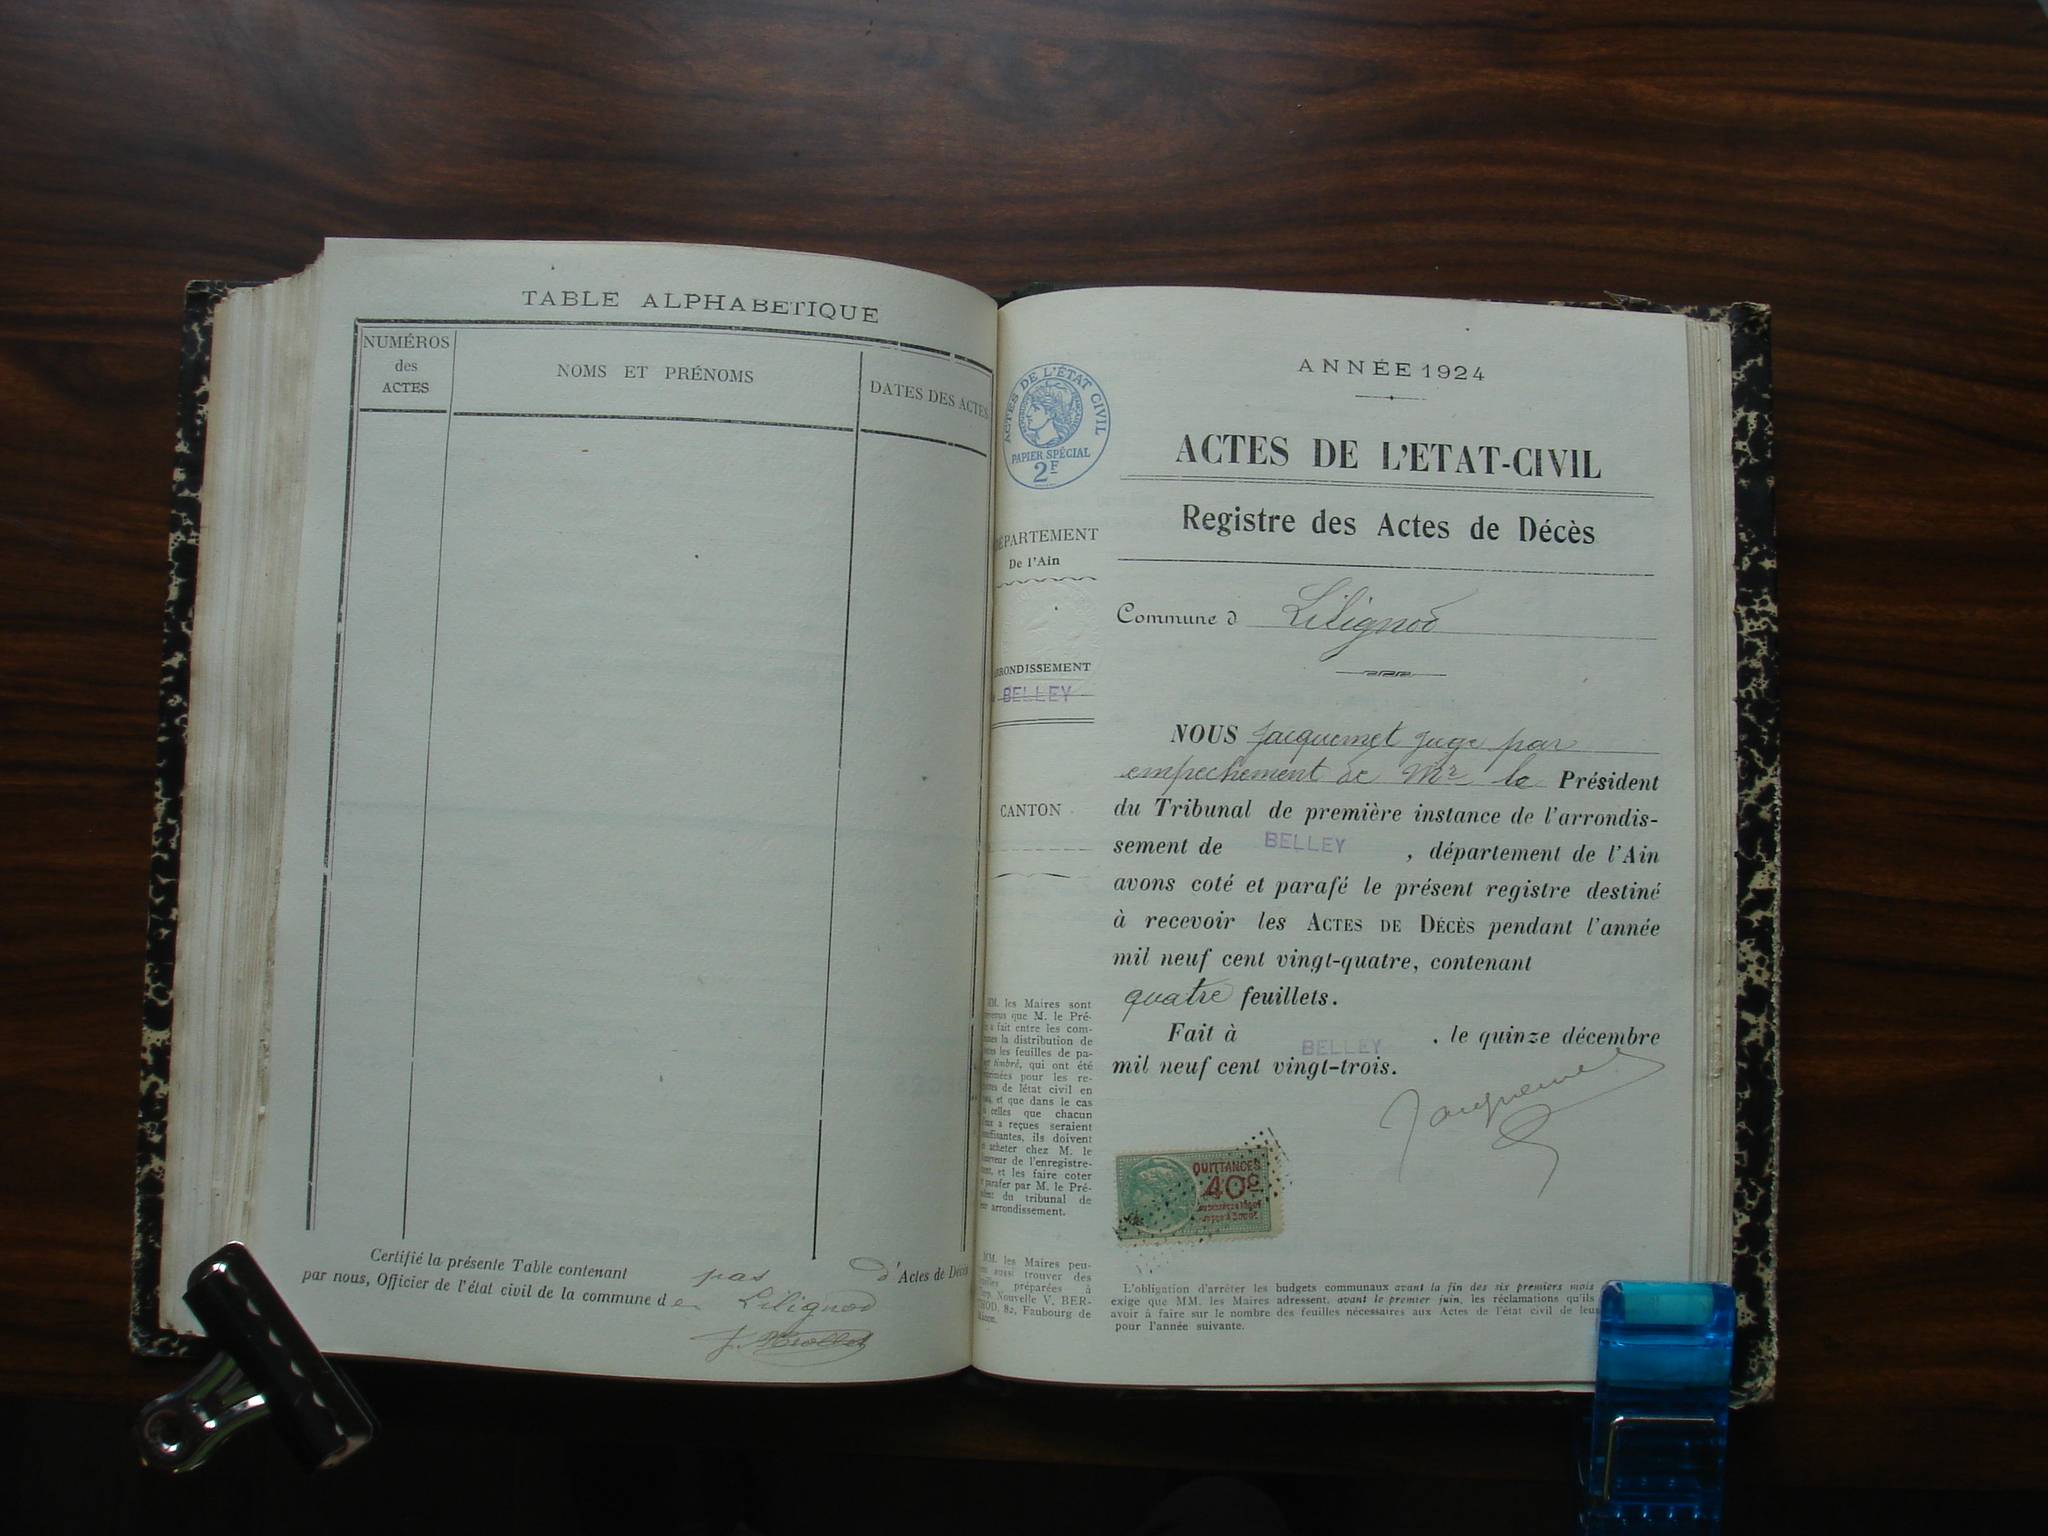 TABLE ALPHABETIQUE
NUMÉROS
des
ACTES
NOMS ET PRÉNOMS
DATES DES ACTES
Certifié la présente Table contenant pas d'Actes de Décès
par nous, Officier de l'état civil de la commune de Lilignod
ACTES DE L'ÉTAT CIVIL
PAPIER SPÉCIAL
2F
DÉPARTEMENT
De l'Ain
ARRONDISSEMENT
BELLEY
CANTON
MM. les Maires sont
que M. le Pré-
a fait entre les com-
la distribution de
les feuilles de pa-
timbré, qui ont été
pour les re-
de létat civil en
et que dans le cas
celles que chacun
a reçues seraient
ils doivent
acheter chez M. le
de l'enregistre-
et les faire coter
parafer par M. le Pré-
du tribunal de
arrondissement.
MM. les Maires peu-
aussi trouver des
préparées à
Nouvelle V. BER-
82, Faubourg de
ANNÉE 1924
ACTES DE L'ETAT-CIVIL
Registre des Actes de Décès
Commune d Lilignod
NOUS Jacquemet Juge par
empechement de Mr le Président
du Tribunal de première instance de l'arrondis-
sement de BELLEY, département de l'Ain
avons coté et parafé le présent registre destiné
à recevoir les ACTES DE DÉCÈS pendant l'année
mil neuf cent vingt-quatre, contenant
quatre feuillets.
Fait à BELLEY, le quinze décembre
mil neuf cent vingt-trois.
Jacquemet
QUITTANCES
40c
L'obligation d'arrêter les budgets communaux avant la fin des six premiers mois
exige que MM. les Maires adressent, avant le premier juin, les réclamations qu'ils
avoir à faire sur le nombre des feuilles nécessaires aux Actes de l'état civil de leur
pour l'année suivante.